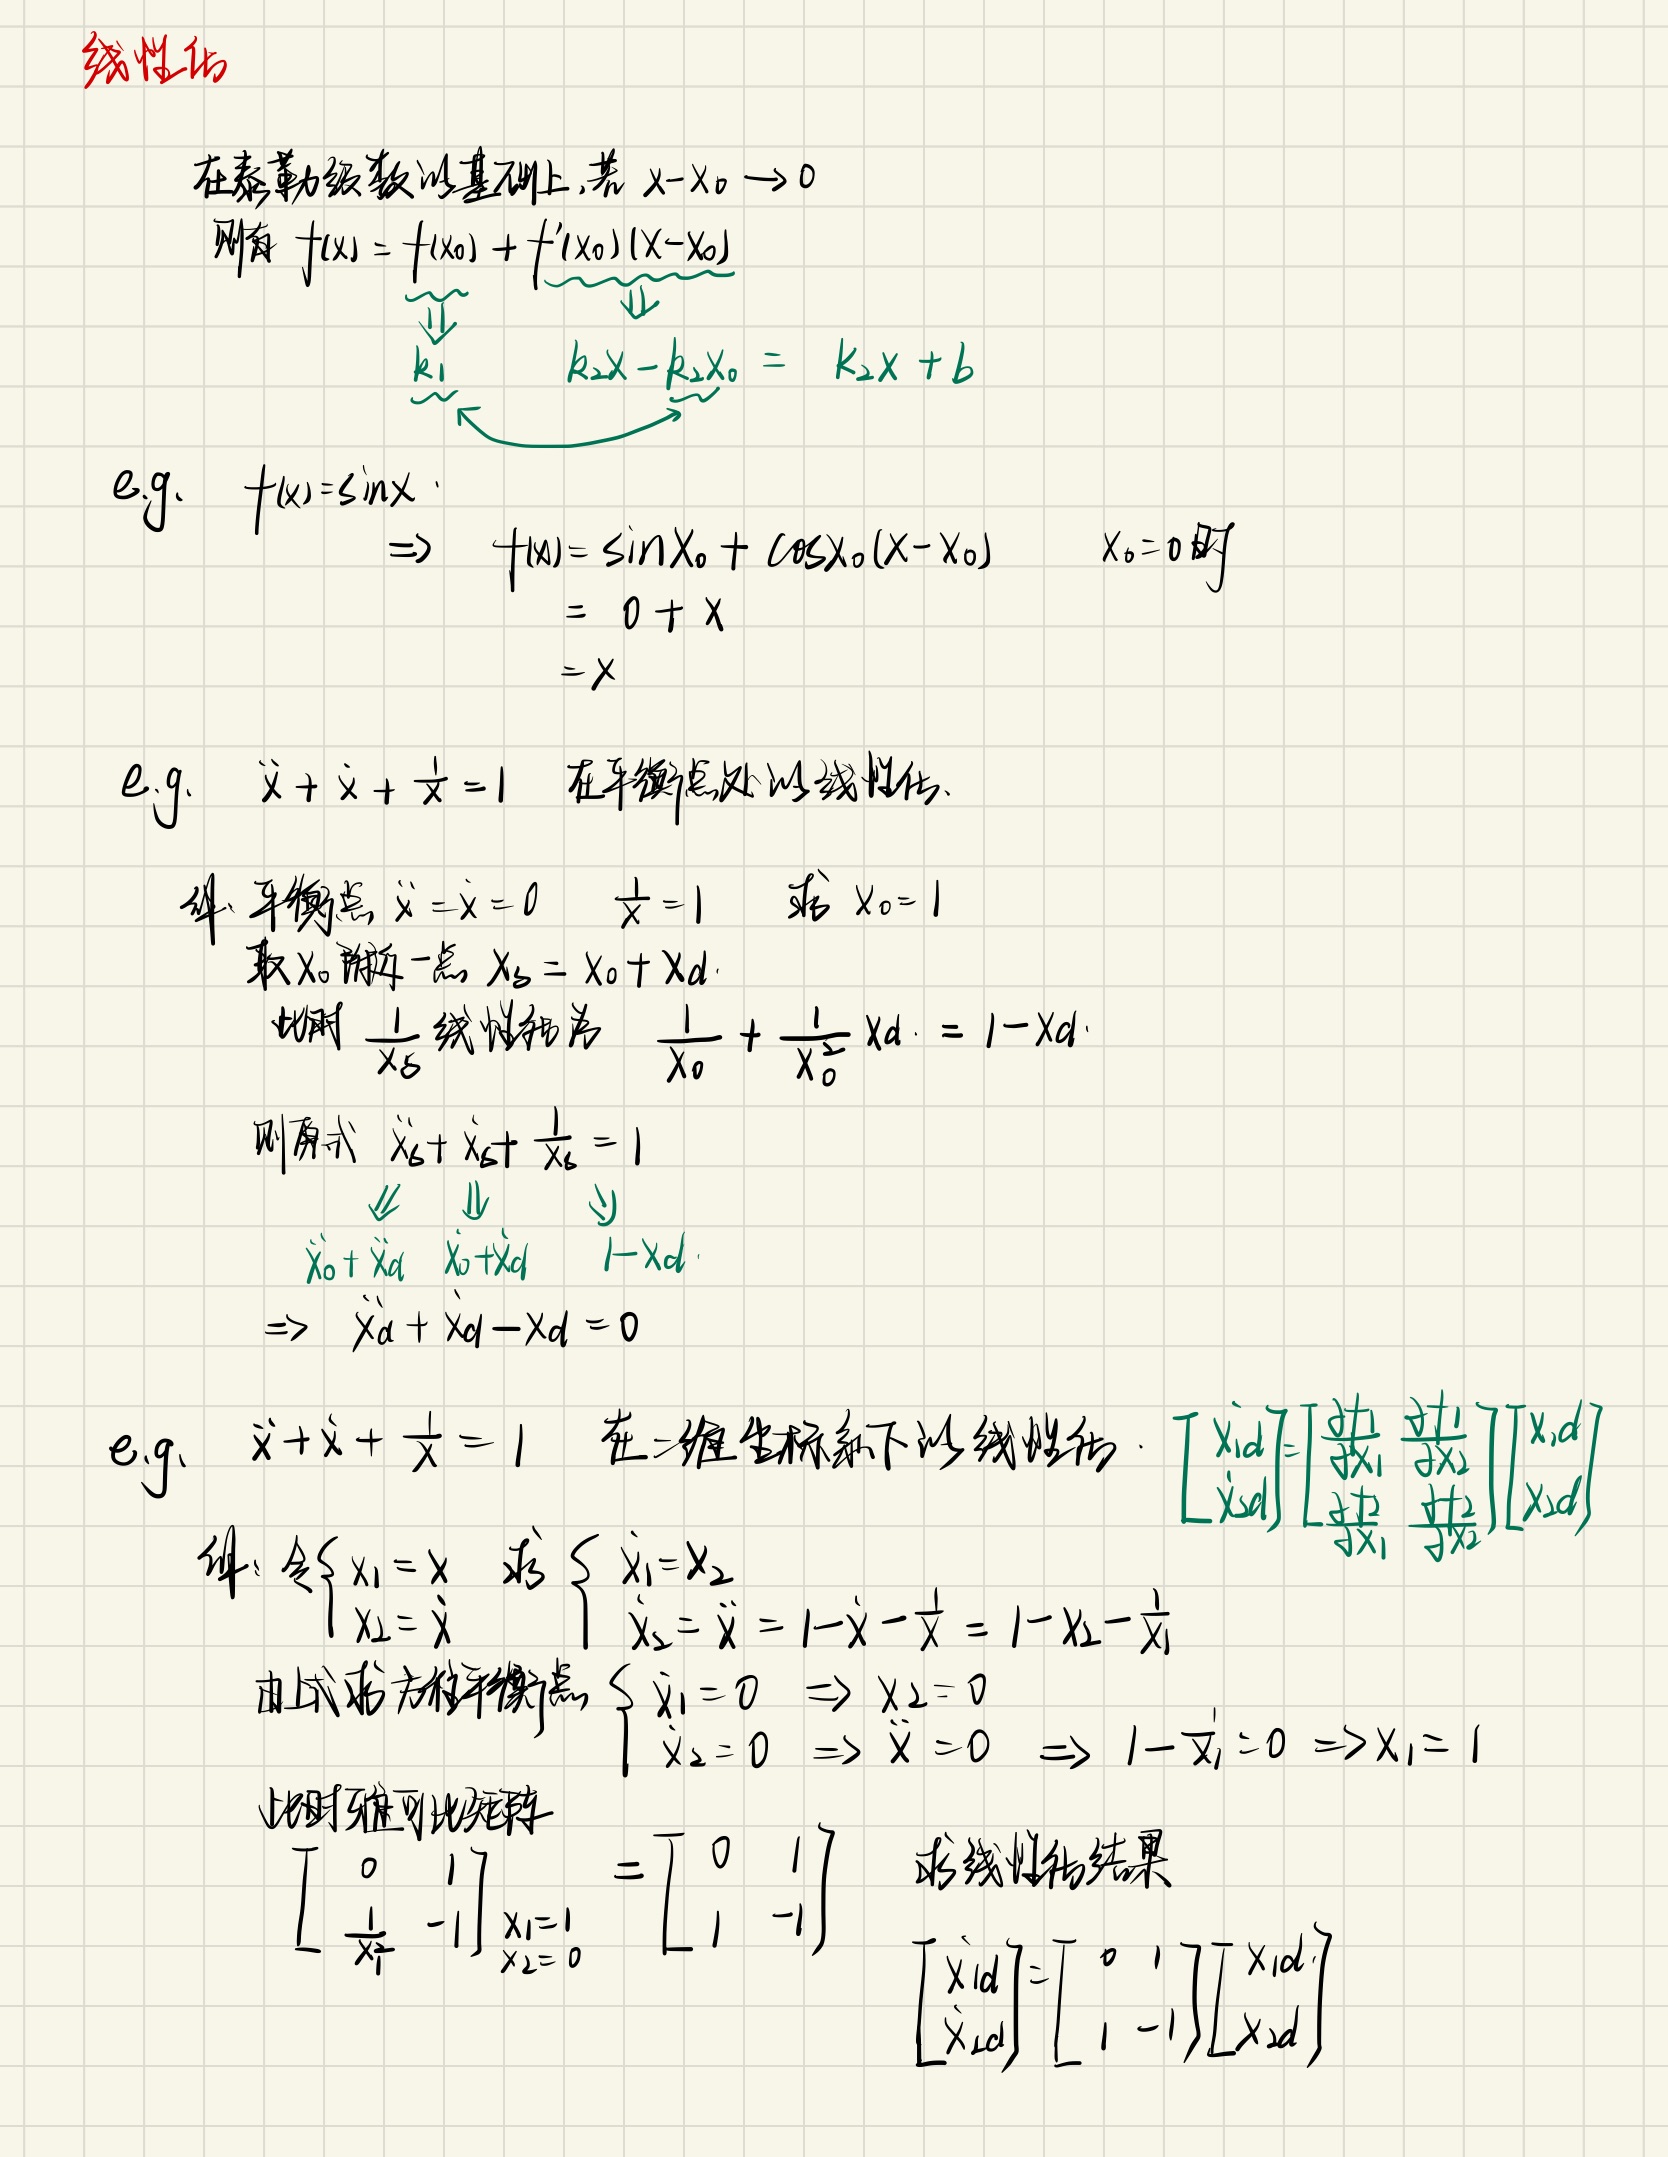 线性化
在泰勒级数的基础上,若 x-x₀→0
则有 f(x) = f(x₀) + f'(x₀)(x-x₀)
⇓ ⇓
k₁ k₂x - k₂x₀ = k₂x + b
e.g. f(x)=sinx.
⇒ f(x)= sinx₀ + cosx₀(x-x₀) x₀=0时
= 0 + x
= x
e.g. ẍ + ẋ + 1/x = 1 在平衡点处的线性化.
解: 平衡点 ẍ = ẋ = 0 1/x = 1 求得 x₀=1
取 x₀ 附近一点 x_δ = x₀ + x_d.
此时 1/x_δ 线性化为 1/x₀ + 1/x₀² x_d. = 1-x_d.
则原式 ẍ_δ + ẋ_δ + 1/x_δ = 1
⇓ ⇓ ⇓
ẍ₀+ẍ_d ẋ₀+ẋ_d 1-x_d.
⇒ ẍ_d + ẋ_d - x_d = 0
e.g. ẍ + ẋ + 1/x = 1 在二维坐标系下的线性化. [ẋ₁d; ẋ₂d] = [∂f₁/∂x₁ ∂f₁/∂x₂; ∂f₂/∂x₁ ∂f₂/∂x₂] [x₁d; x₂d]
解: 令 { x₁ = x 得 { ẋ₁ = x₂
x₂ = ẋ ẋ₂ = ẍ = 1-ẋ-1/x = 1-x₂-1/x₁
由上式得方程平衡点 { ẋ₁ = 0 ⇒ x₂ = 0
ẋ₂ = 0 ⇒ ẍ = 0 ⇒ 1-1/x₁ = 0 ⇒ x₁ = 1
此时雅可比矩阵
[0 1; 1/x₁² -1] x₁=1 x₂=0 = [0 1; 1 -1] 得线性化结果
[ẋ₁d; ẋ₂d] = [0 1; 1 -1] [x₁d; x₂d]